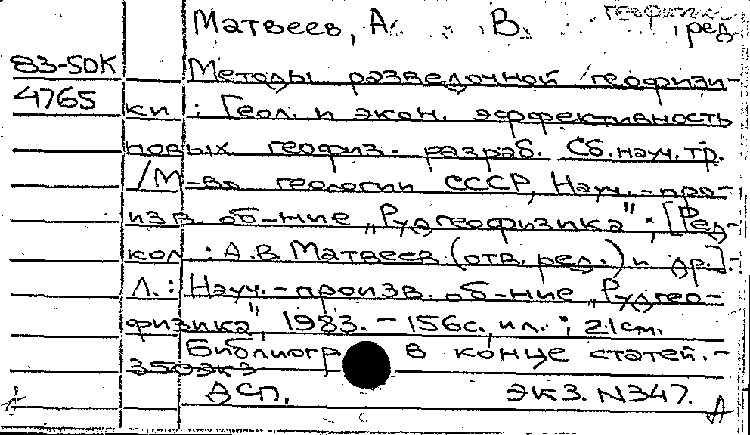 геофизик
Матвеев, А. В. ред.
83-50К Методы разведочной геофизи-
4765 ки: Геол. и экон. эффективность
новых геофиз. разраб. Сб. науч. тр.
/М-во геологии СССР, Науч.-про-
изв. об-ние "Рудгеофизика"; [Ред-
кол.: А.В. Матвеев (отв. ред.) и др.].-
Л.: Науч.-произв. об-ние "Рудгео-
физика", 1983. - 156с. ил.; 21см.
Библиогр. в конце статей.-
350экз
ДСП. экз. N347.